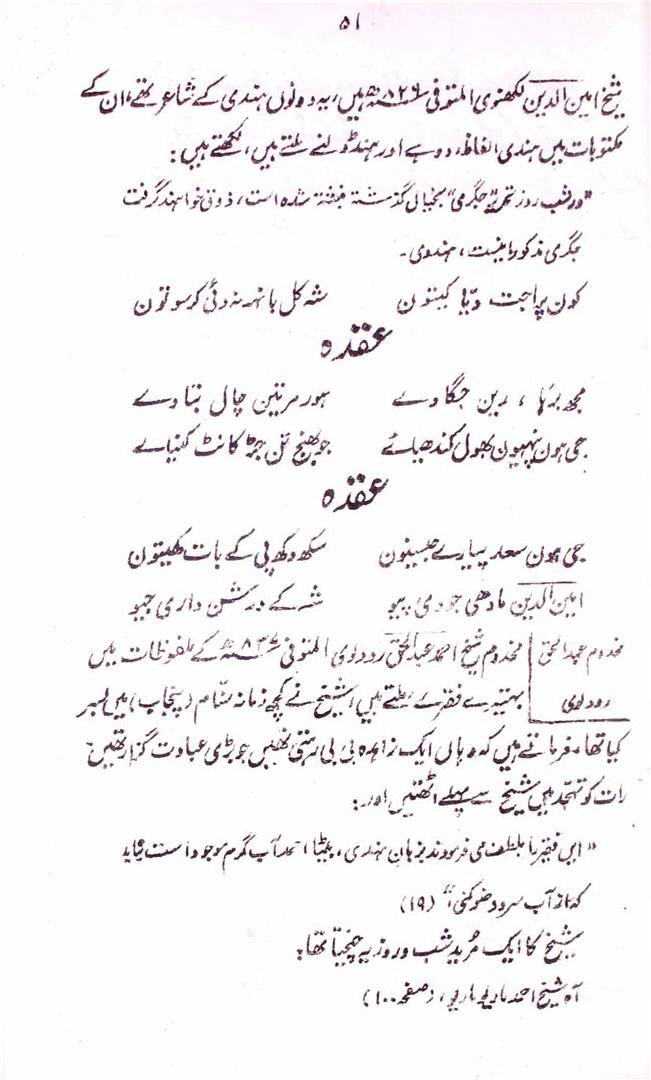 ۵۱
شیخ امین الدین لکھنوی المتوفی ۸۲۶ھ ہیں، یہ دونوں ہندی کے شاعر تھے، ان کے
مکتوبات میں ہندی الفاظ، دوہے اور ہنڈولنے ملتے ہیں، لکھتے ہیں:
"در شب روز تحریر "جگری" بخیال گذشتہ نبشتہ شدہ است، ذوق خواہند گرفت
جگری مذکور اینست، ہندوی۔
کون پراجت دیا کیتون شہ کل بانہہ نہ دئی کرسو تون
عقدہ
مجھ برہا، رین جگا دے ہور مریتین چال بتا دے
جی ہون پنہیون پھول کندھیائے جو بھنج تن جڑ کانٹ کنیائے
عقدہ
جی ہون سعد پیارے جسینون سکھ دکھ پی کے بات کھیتون
امین الدین مادھی جو دی پیو شہ کے درشن داری جیو
مخدوم عبدالحق رودلوی
مخدوم شیخ احمد عبدالحق رودلوی المتوفی ۸۳۷ھ کے ملفوظات میں
بہتیرے فقرے ملتے ہیں، شیخ نے کچھ زمانہ سنام (پنجاب) میں بسر
کیا تھا، فرماتے ہیں کہ وہاں ایک زاہدہ بی بی رہتی تھیں جو بڑی عبادت گزار تھیں
رات کو تہجد میں شیخ سے پہلے اٹھتیں اور:
"ایں فقیر را بلطف می فرمودند بزبان ہندی، بیٹا احمد آب گرم موجود است بیاید
کہ از آب سرد وضو کنی" (۱۹)
شیخ کا ایک مرید شب و روز یہ چیختا تھا:
آہ شیخ احمد مارلے مارپو، (صفحہ ۱۰۰)